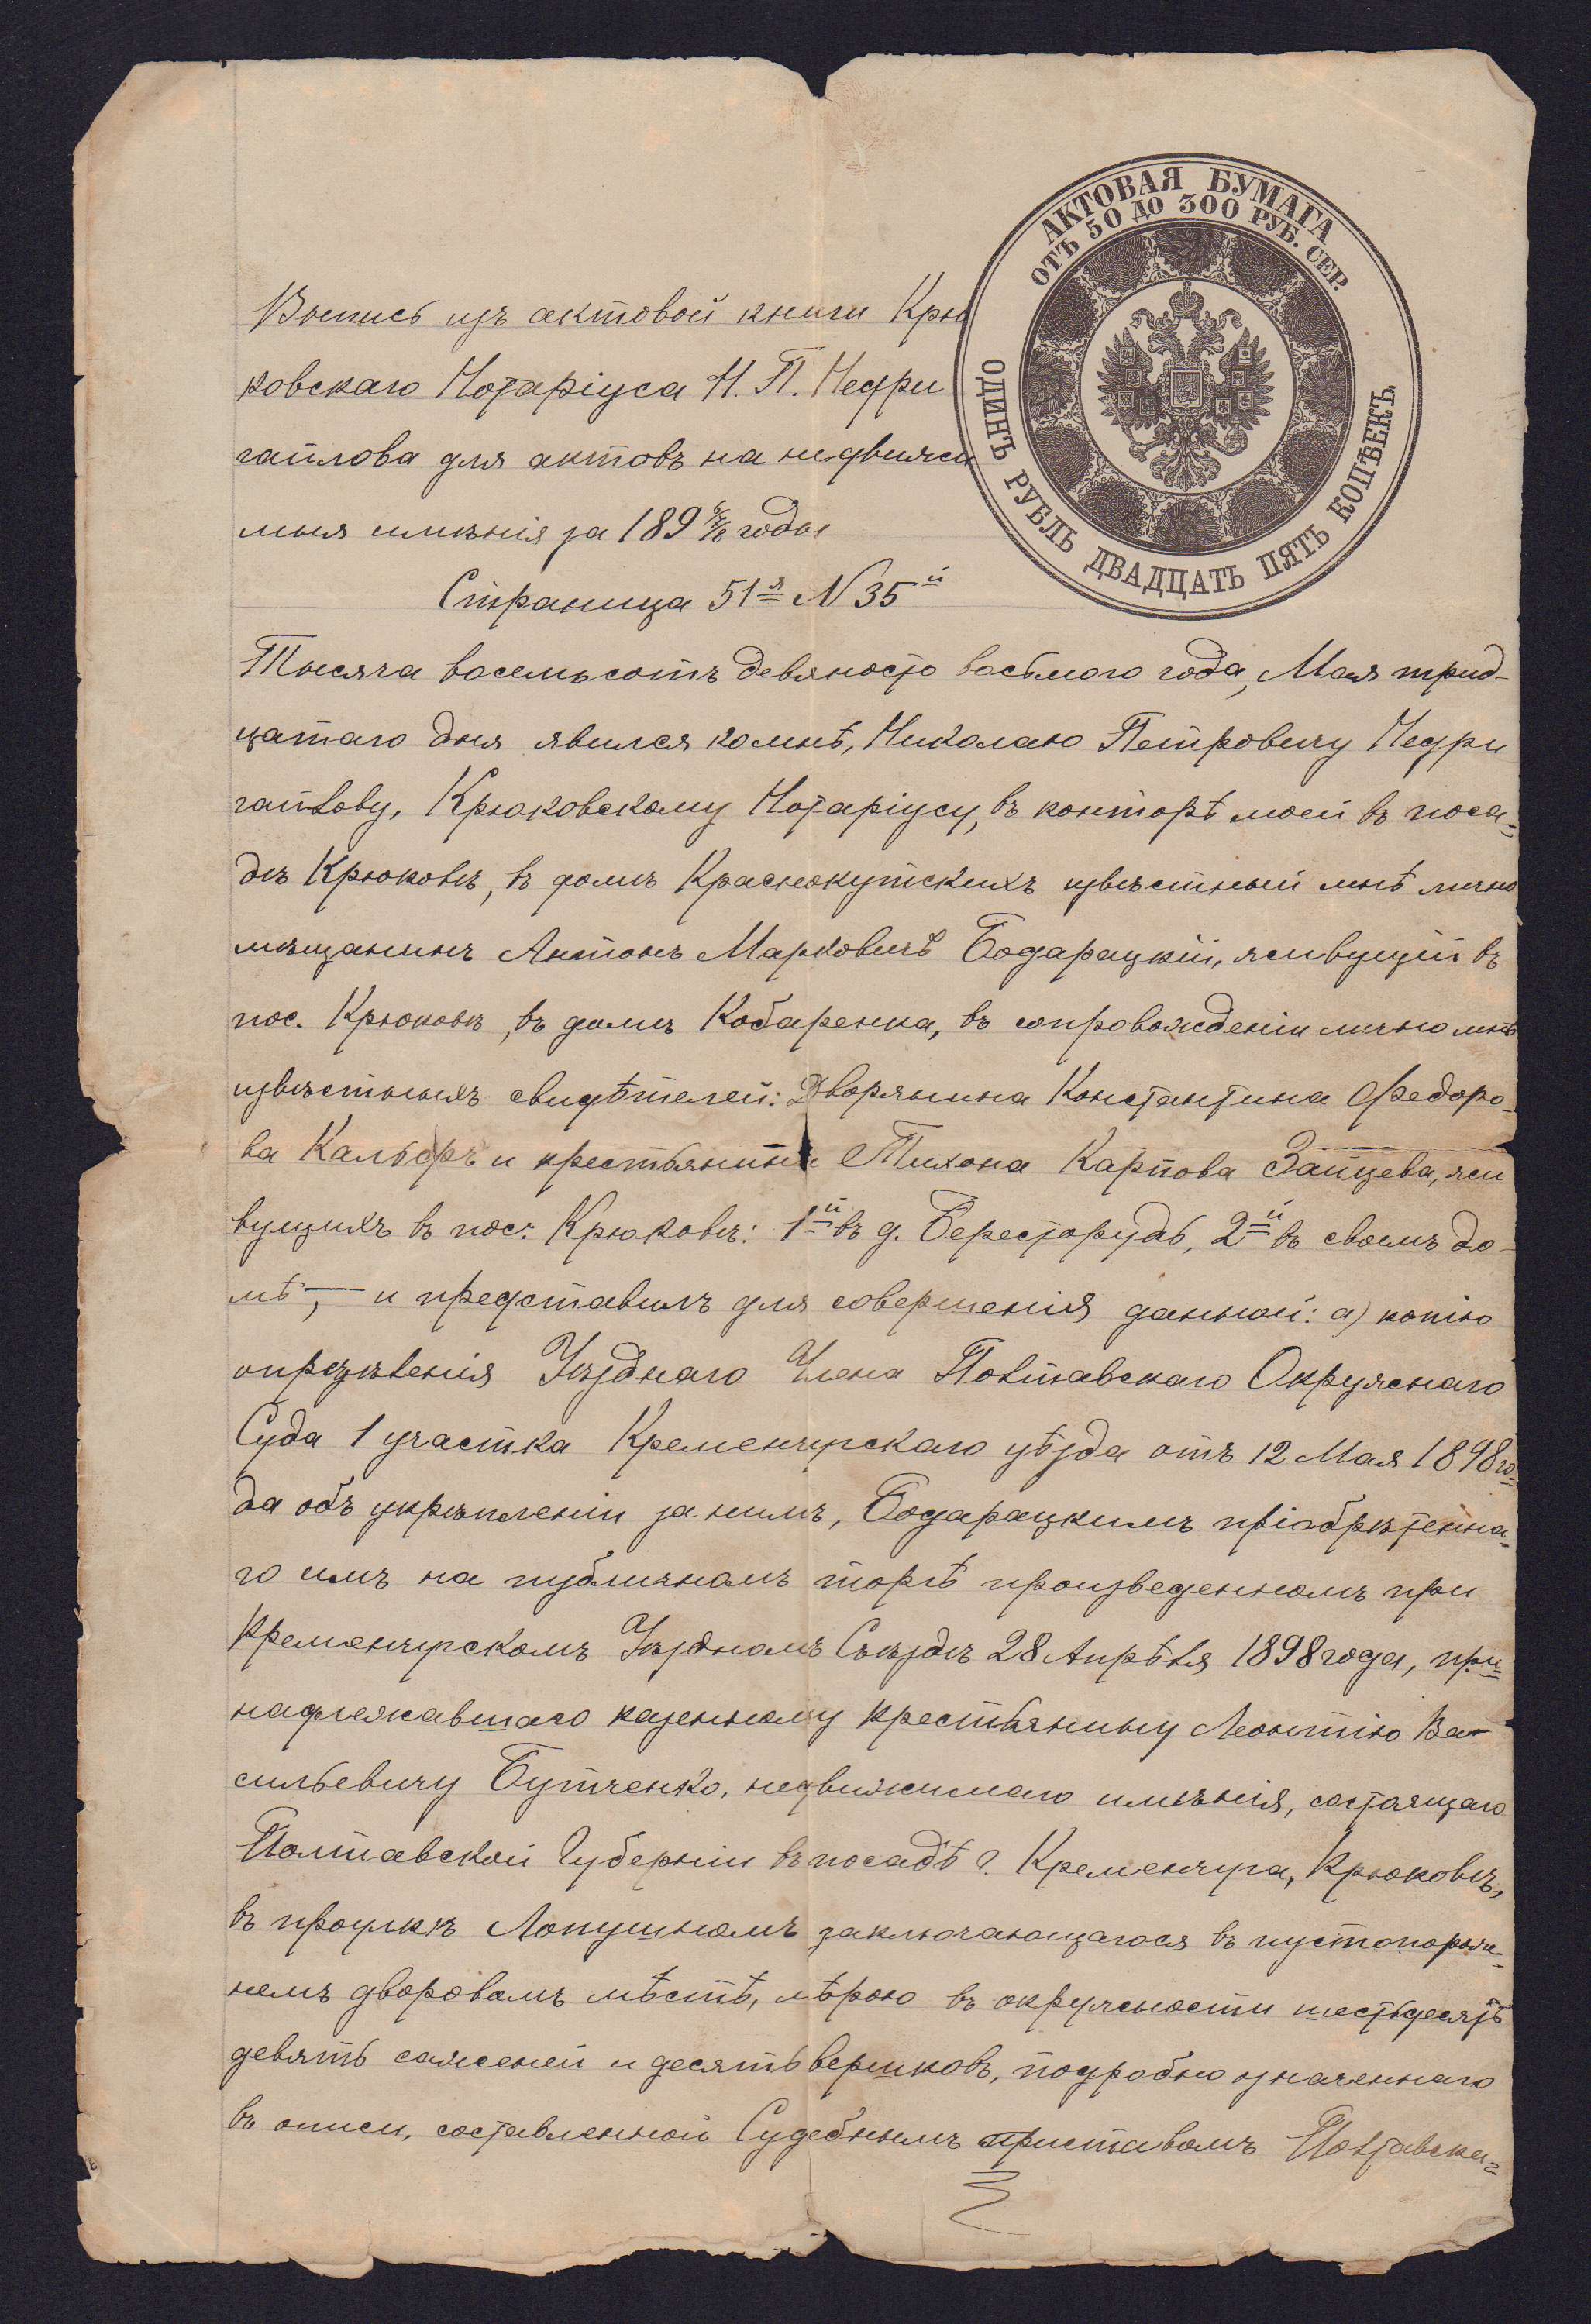 АКТОВАЯ БУМАГА
ОТЪ 50 ДО 300 РУБ. СЕР.
ОДИНЪ РУБЛЬ ДВАДЦАТЬ ПЯТЬ КОПѢЕКЪ
Выпись изъ актовой книги Крю
ковскаго Нотаріуса Н. П. Недри
гайлова для актовъ на недвижи
мыя имѣнія за 189 6/7/8 годы
Страница 51я N 35й
Тысяча восемьсотъ девяносто восьмого года, Мая трид-
цатаго дня явился ко мнѣ, Николаю Петровичу Недри
гайлову, Крюковскому Нотаріусу, въ конторѣ моей въ поса=
дѣ Крюковѣ, въ домѣ Краснокутскихъ извѣстный мнѣ лично
мѣщанинъ Антонъ Марковичъ Бодарацкій, живущій въ
пос. Крюковѣ, въ домѣ Кобаренка, въ сопровожденіи лично мнѣ
извѣстныхъ свидѣтелей: Дворянина Константина Федоро-
ва Кальфръ и крестьянина Тихона Карпова Зайцева, жи
вущихъ въ пос. Крюковѣ: 1й въ д. Бересторудь, 2й въ своемъ до-
мѣ, — и представилъ для совершенія данной: а) копію
опредѣленія Уѣзднаго Члена Полтавскаго Окружнаго
Суда 1 участка Кременчугскаго уѣзда отъ 12 Мая 1898 го=
да объ укрѣпленіи за нимъ, Бодарацкимъ пріобрѣтенна=
го имъ на публичномъ торгѣ произведенномъ при
Кременчугскомъ Уѣздномъ Съѣздѣ 28 Апрѣля 1898 года, при=
надлежавшаго казенному крестьянину Леонтію Ва-
сильевичу Бутченко, недвижимаго имѣнія, состоящаго
Полтавской Губерніи въ посадѣ г. Кременчуга, Крюковѣ,
въ проулкѣ Лопушномъ заключающагося въ пустопорож=
немъ дворовомъ мѣстѣ, мѣрою въ окружности шестьдесятъ
девять саженей и десять вершковъ, подробно означеннаго
въ описи, составленной Судебнымъ приставомъ Полтавска=